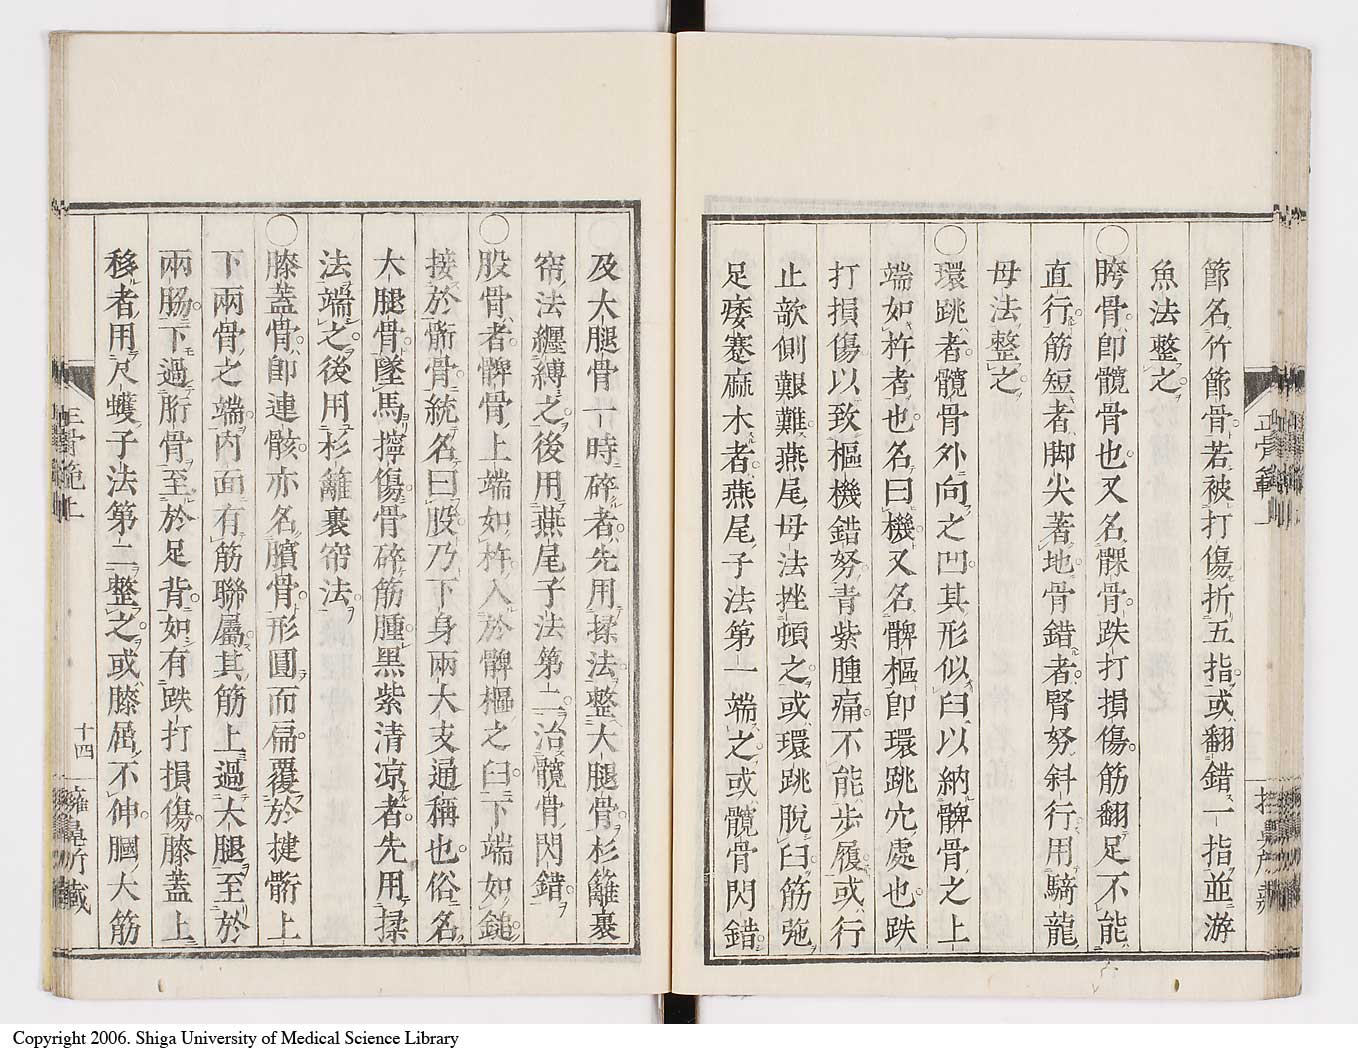 節名竹節骨若被打傷折五指或翻錯一指並游
魚法整之
○胯骨即髖骨也又名髁骨跌打損傷筋翻足不能
直行筋短者脚尖著地骨錯者臀努斜行用騎龍
母法整之
○環跳者髖骨外向之凹其形似臼以納髀骨之上
端如杵者也名曰機又名髀樞即環跳穴處也跌
打損傷以致樞機錯努青紫腫痛不能步履或行
止欹側艱難燕尾母法挫頓之或環跳脫臼筋弛
足痿蹇麻木者燕尾子法第一端之或髖骨閃錯
及大腿骨一時碎者先用揉法整大腿骨杉籬裹
帘法纏縛之後用燕尾子法第二治髖骨閃錯
○股骨者髀骨上端如杵入於髀樞之臼下端如鎚
接於䯒骨統名曰股乃下身兩大支通稱也俗名
大腿骨墜馬擰傷骨碎筋腫黑紫清凉者先用揉
法端之後用杉籬裹帘法
○膝蓋骨即連骸亦名臏骨形圓而扁覆於揵䯒上
下兩骨之端内面有筋聯屬其筋上過大腿至於
兩肠下過胻骨至於足背如有跌打損傷膝蓋上
移者用尺蠖子法第二整之或膝屈不伸膕大筋
正骨範上
十四
擁鼻所藏
Copyright 2006. Shiga University of Medical Science Library